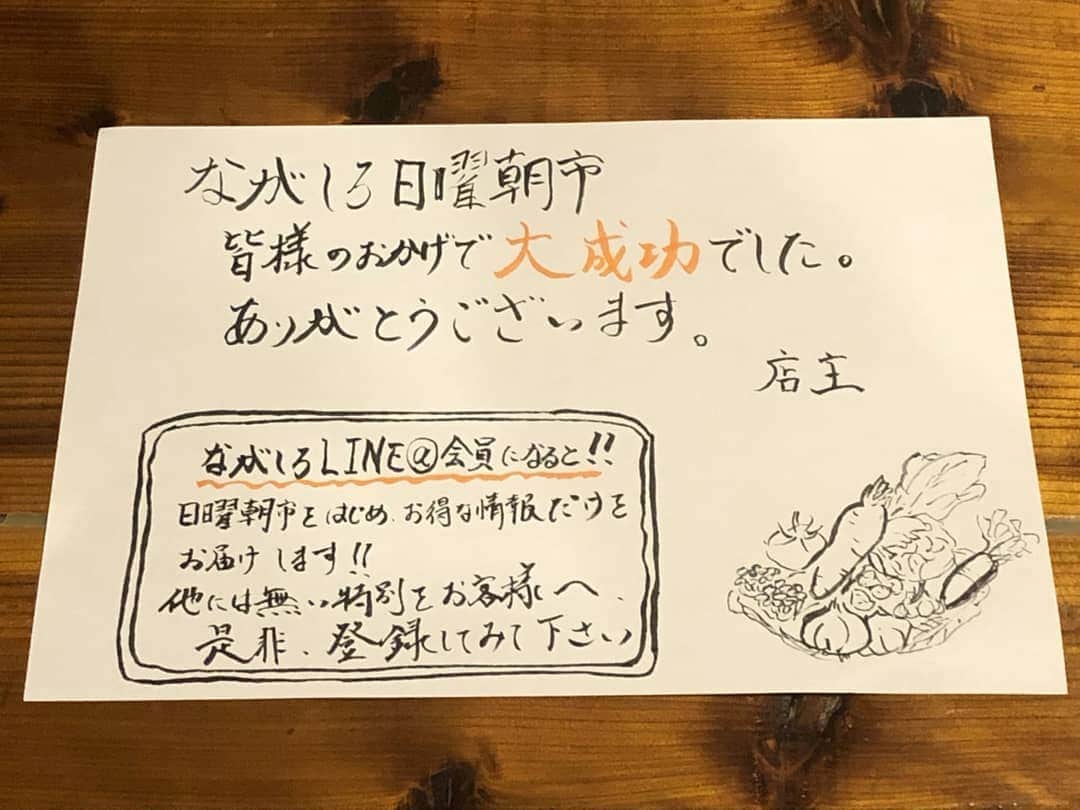 ながしろ日曜朝市
皆様のおかげで大成功でした。
ありがとうございます。
店主
ながしろLINE@会員になると!!
日曜朝市をはじめ、お得な情報だけを
お届けします!!
他には無い特別をお客様へ、
是非、登録してみて下さい